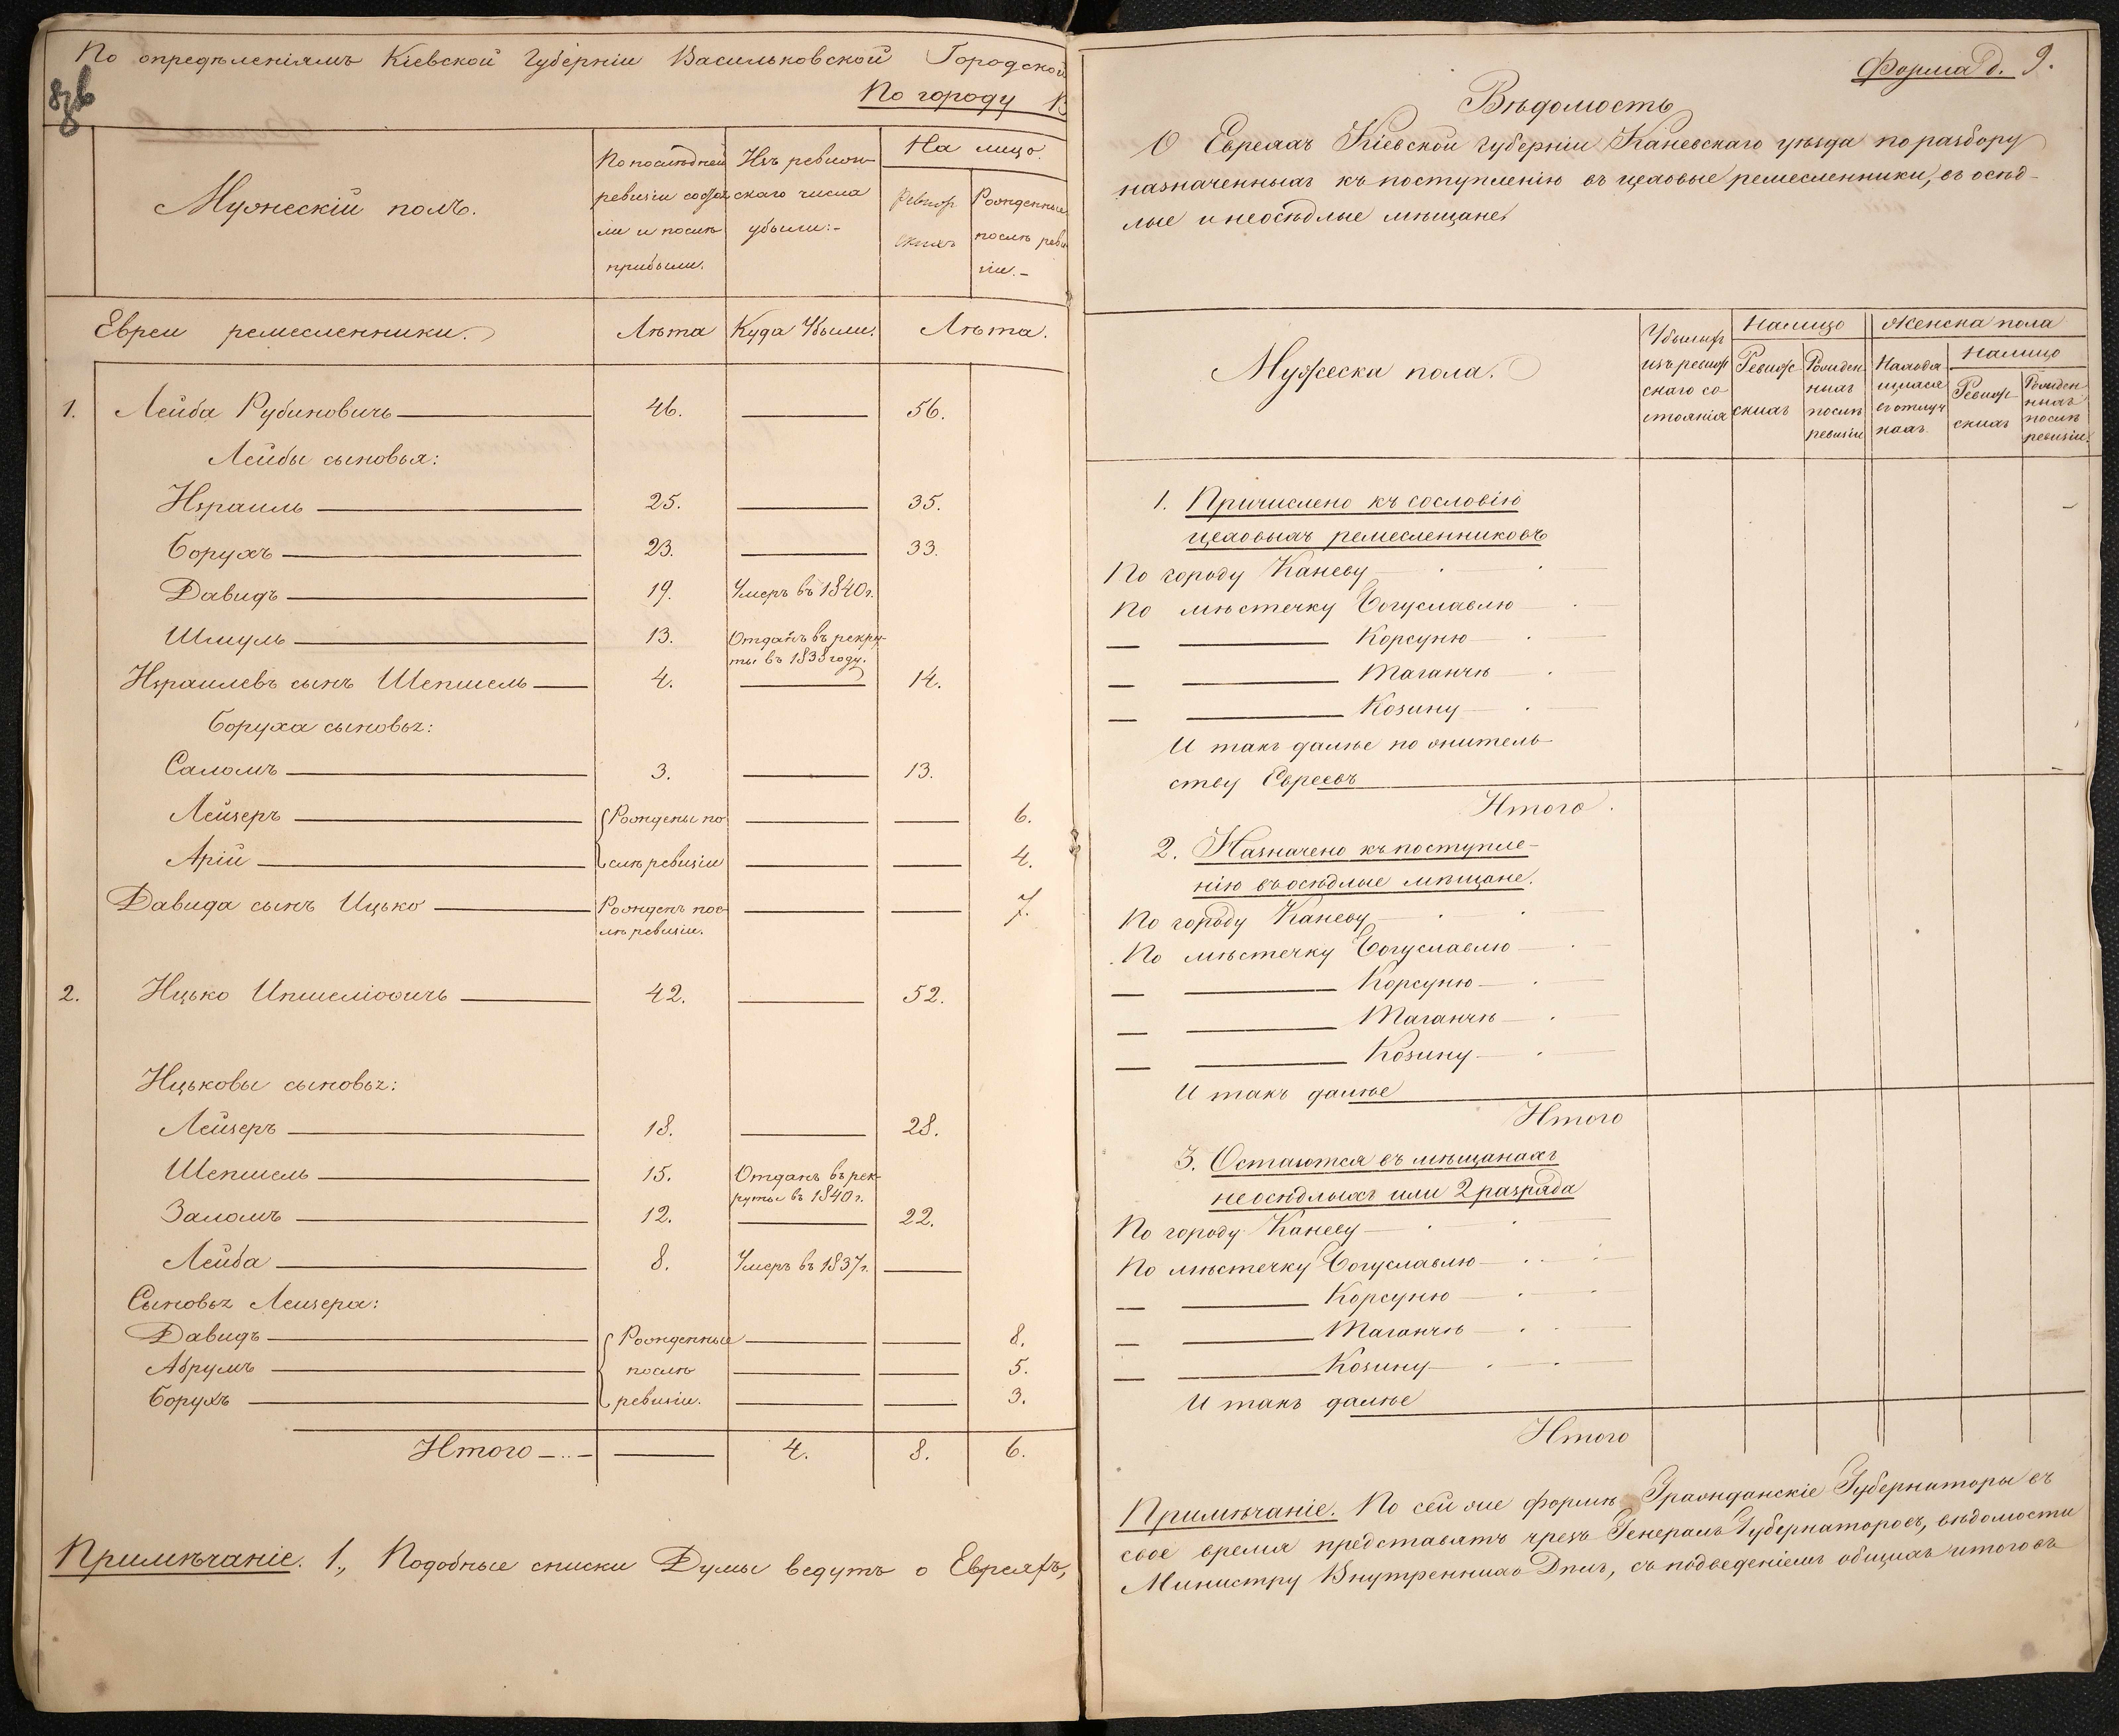 По опредѣленіямъ Кіевской Губерніи Васильковской Городской
По городу В
Мужескій полъ.
По послѣдней
ревизіи состоя
ли и послѣ
прибыли.
Изъ ревизн-
скаго числа
убыли:-
На лицо.
Ревиз
скихъ
Рожденные
послѣ реви
зіи.-
Евреи ремесленники.
Лѣта
Куда Убыли.
Лѣта.
1. Лейба Рубиновичъ 46. 56.
Лейбы сыновья:
Израиль 25. 35.
Борухъ 23. 33.
Давидъ 19. Умеръ въ 1840 г.
Шмуль 13. Отданъ въ рекру-
ты въ 1838 году.
Израилевъ сынъ Шепшель 4. 14.
Боруха сыновья:
Саломъ 3. 13.
Лейзеръ Рождены по 6.
Арій слѣ ревизіи 4.
Давида сынъ Ицько Рожденъ пос- 7.
лѣ ревизіи.
2. Ицько Ипшеліовичъ 42. 52.
Ицьковы сыновья:
Лейзеръ 18. 28.
Шепшель 15. Отданъ въ рек-
руты въ 1840 г.
Заломъ 12. 22.
Лейба 8. Умеръ въ 1837 г.
Сыновья Лейзера:
Давидъ Рожденные 8.
Абрумъ послѣ 5.
Борухъ ревизіи. 3.
Итого 4. 8. 6.
Примѣчаніе. 1., Подобные списки Думы ведутъ о Евреяхъ,
Форма д. 9.
Вѣдомость
О Евреяхъ Кіевской губерніи Каневскаго уѣзда по разбору
назначенныхъ къ поступленію въ цеховые ремесленники, въ осѣд-
лые и неосѣдлые мѣщане.
Мужеска пола.
Убылыхъ
изъ ревизс
скаго со
стоянія
Налицо
Ревизс
скихъ
Рожден
ныхъ
послѣ
ревизіи
Женска пола
Находя
щихся
въ отлуч
кахъ.
Налицо
Ревизс
скихъ
Рожден
ныхъ
послѣ
ревизіи.
1. Причислено къ сословію
цеховыхъ ремесленниковъ
По городу Каневу
По мѣстечку Богуславлю
Корсуню
Таганчѣ
Козину
И такъ далѣе по житель-
ству Евреевъ
Итого.
2. Назначено къ поступле-
нію въ осѣдлые мѣщане.
По городу Каневу
По мѣстечку Богуславлю
Корсуню
Таганчѣ
Козину
И такъ далѣе
Итого
3. Остаются въ мѣщанахъ
неосѣдлыхъ или 2 разряда
По городу Каневу
По мѣстечку Богуславлю
Корсуню
Таганчѣ
Козину
И такъ далѣе
Итого
Примѣчаніе. По сей же формѣ Гражданскіе Губернаторы въ
свое время представятъ чрезъ Генералъ Губернаторовъ, вѣдомости
Министру Внутреннихъ Дѣлъ, съ подведеніемъ общихъ итоговъ